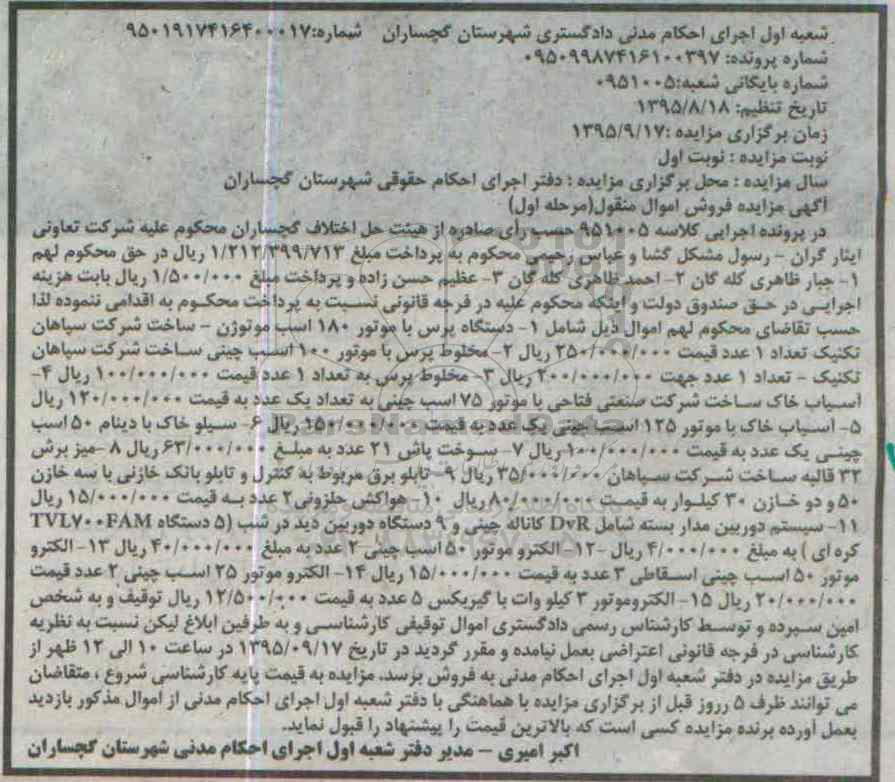 شعبه اول اجرای احکام مدنی دادگستری شهرستان گچساران شماره:۹۵۰۱۹۱۷۴۱۶۴۰۰۰۱۷
شماره پرونده: ۰۹۵۰۹۹۸۷۴۱۶۱۰۰۳۹۷
شماره بایگانی شعبه:۰۹۵۱۰۰۵
تاریخ تنظیم: ۱۳۹۵/۸/۱۸
زمان برگزاری مزایده :۱۳۹۵/۹/۱۷
نوبت مزایده : نوبت اول
سال مزایده : محل برگزاری مزایده : دفتر اجرای احکام حقوقی شهرستان گچساران
آگهی مزایده فروش اموال منقول(مرحله اول)
در پرونده اجرایی کلاسه ۹۵۱۰۰۵ حسب رأی صادره از هیئت حل اختلاف گچساران محکوم علیه شرکت تعاونی
ایثار گران - رسول مشکل گشا و عباس رحیمی محکوم به پرداخت مبلغ ۱/۲۱۲/۳۹۹/۷۱۳ ریال در حق محکوم لهم
۱- جبار ظاهری کله گان ۲- احمد ظاهری کله گان ۳- عظیم حسن زاده و پرداخت مبلغ ۱/۵۰۰/۰۰۰ ریال بابت هزینه
اجرایی در حق صندوق دولت و اینکه محکوم علیه در فرجه قانونی نسبت به پرداخت محکوم به اقدامی ننموده لذا
حسب تقاضای محکوم لهم اموال ذیل شامل ۱- دستگاه پرس با موتور ۱۸۰ اسب موتوژن - ساخت شرکت سپاهان
تکنیک تعداد ۱ عدد قیمت ۲۵۰/۰۰۰/۰۰۰ ریال ۲- مخلوط پرس با موتور ۱۰۰ اسب چینی ساخت شرکت سپاهان
تکنیک - تعداد ۱ عدد جهت ۲۰۰/۰۰۰/۰۰۰ ریال ۳- مخلوط پرس به تعداد ۱ عدد قیمت ۱۰۰/۰۰۰/۰۰۰ ریال ۴-
آسیاب خاک ساخت شرکت صنعتی فتاحی با موتور ۷۵ اسب چینی به تعداد یک عدد به قیمت ۱۲۰/۰۰۰/۰۰۰ ریال
۵- آسیاب خاک با موتور ۱۲۵ اسب چینی یک عدد به قیمت ۱۵۰/۰۰۰/۰۰۰ ریال ۶- سیلو خاک با دینام ۵۰ اسب
چینی یک عدد به قیمت ۱۰۰/۰۰۰/۰۰۰ ریال ۷- سوخت پاش ۲۱ عدد به مبلغ ۶۳/۰۰۰/۰۰۰ ریال ۸ -میز برش
۳۲ قالبه ساخت شرکت سپاهان ۳۵/۰۰۰/۰۰۰ ریال ۹- تابلو برق مربوط به کنترل و تابلو بانک خازنی با سه خازن
۵۰ و دو خازن ۳۰ کیلوار به قیمت ۸۰/۰۰۰/۰۰۰ ریال ۱۰- هواکش حلزونی ۲ عدد به قیمت ۱۵/۰۰۰/۰۰۰ ریال
۱۱- سیستم دوربین مدار بسته شامل DvR کاناله چینی و ۹ دستگاه دوربین دید در شب (۵ دستگاه TVL۷۰۰FAM
کره ای ) به مبلغ ۴/۰۰۰/۰۰۰ ریال -۱۲- الکترو موتور ۵۰ اسب چینی ۲ عدد به مبلغ ۴۰/۰۰۰/۰۰۰ ریال ۱۳- الکترو
موتور ۵۰ اسب چینی اسقاطی ۳ عدد به قیمت ۱۵/۰۰۰/۰۰۰ ریال ۱۴- الکترو موتور ۲۵ اسب چینی ۲ عدد قیمت
۲۰/۰۰۰/۰۰۰ ریال ۱۵- الکتروموتور ۳ کیلو وات با گیربکس ۵ عدد به قیمت ۱۲/۵۰۰/۰۰۰ ریال توقیف و به شخص
امین سپرده و توسط کارشناس رسمی دادگستری اموال توقیفی کارشناسی و به طرفین ابلاغ لیکن نسبت به نظریه
کارشناسی در فرجه قانونی اعتراضی بعمل نیامده و مقرر گردید در تاریخ ۱۳۹۵/۰۹/۱۷ در ساعت ۱۰ الی ۱۲ ظهر از
طریق مزایده در دفتر شعبه اول اجرای احکام مدنی به فروش برسد، مزایده به قیمت پایه کارشناسی شروع ، متقاضان
می توانند ظرف ۵ رروز قبل از برگزاری مزایده با هماهنگی با دفتر شعبه اول اجرای احکام مدنی از اموال مذکور بازدید
بعمل آورده برنده مزایده کسی است که بالاترین قیمت را پیشنهاد را قبول نماید.
اکبر امیری - مدیر دفتر شعبه اول اجرای احکام مدنی شهرستان گچساران